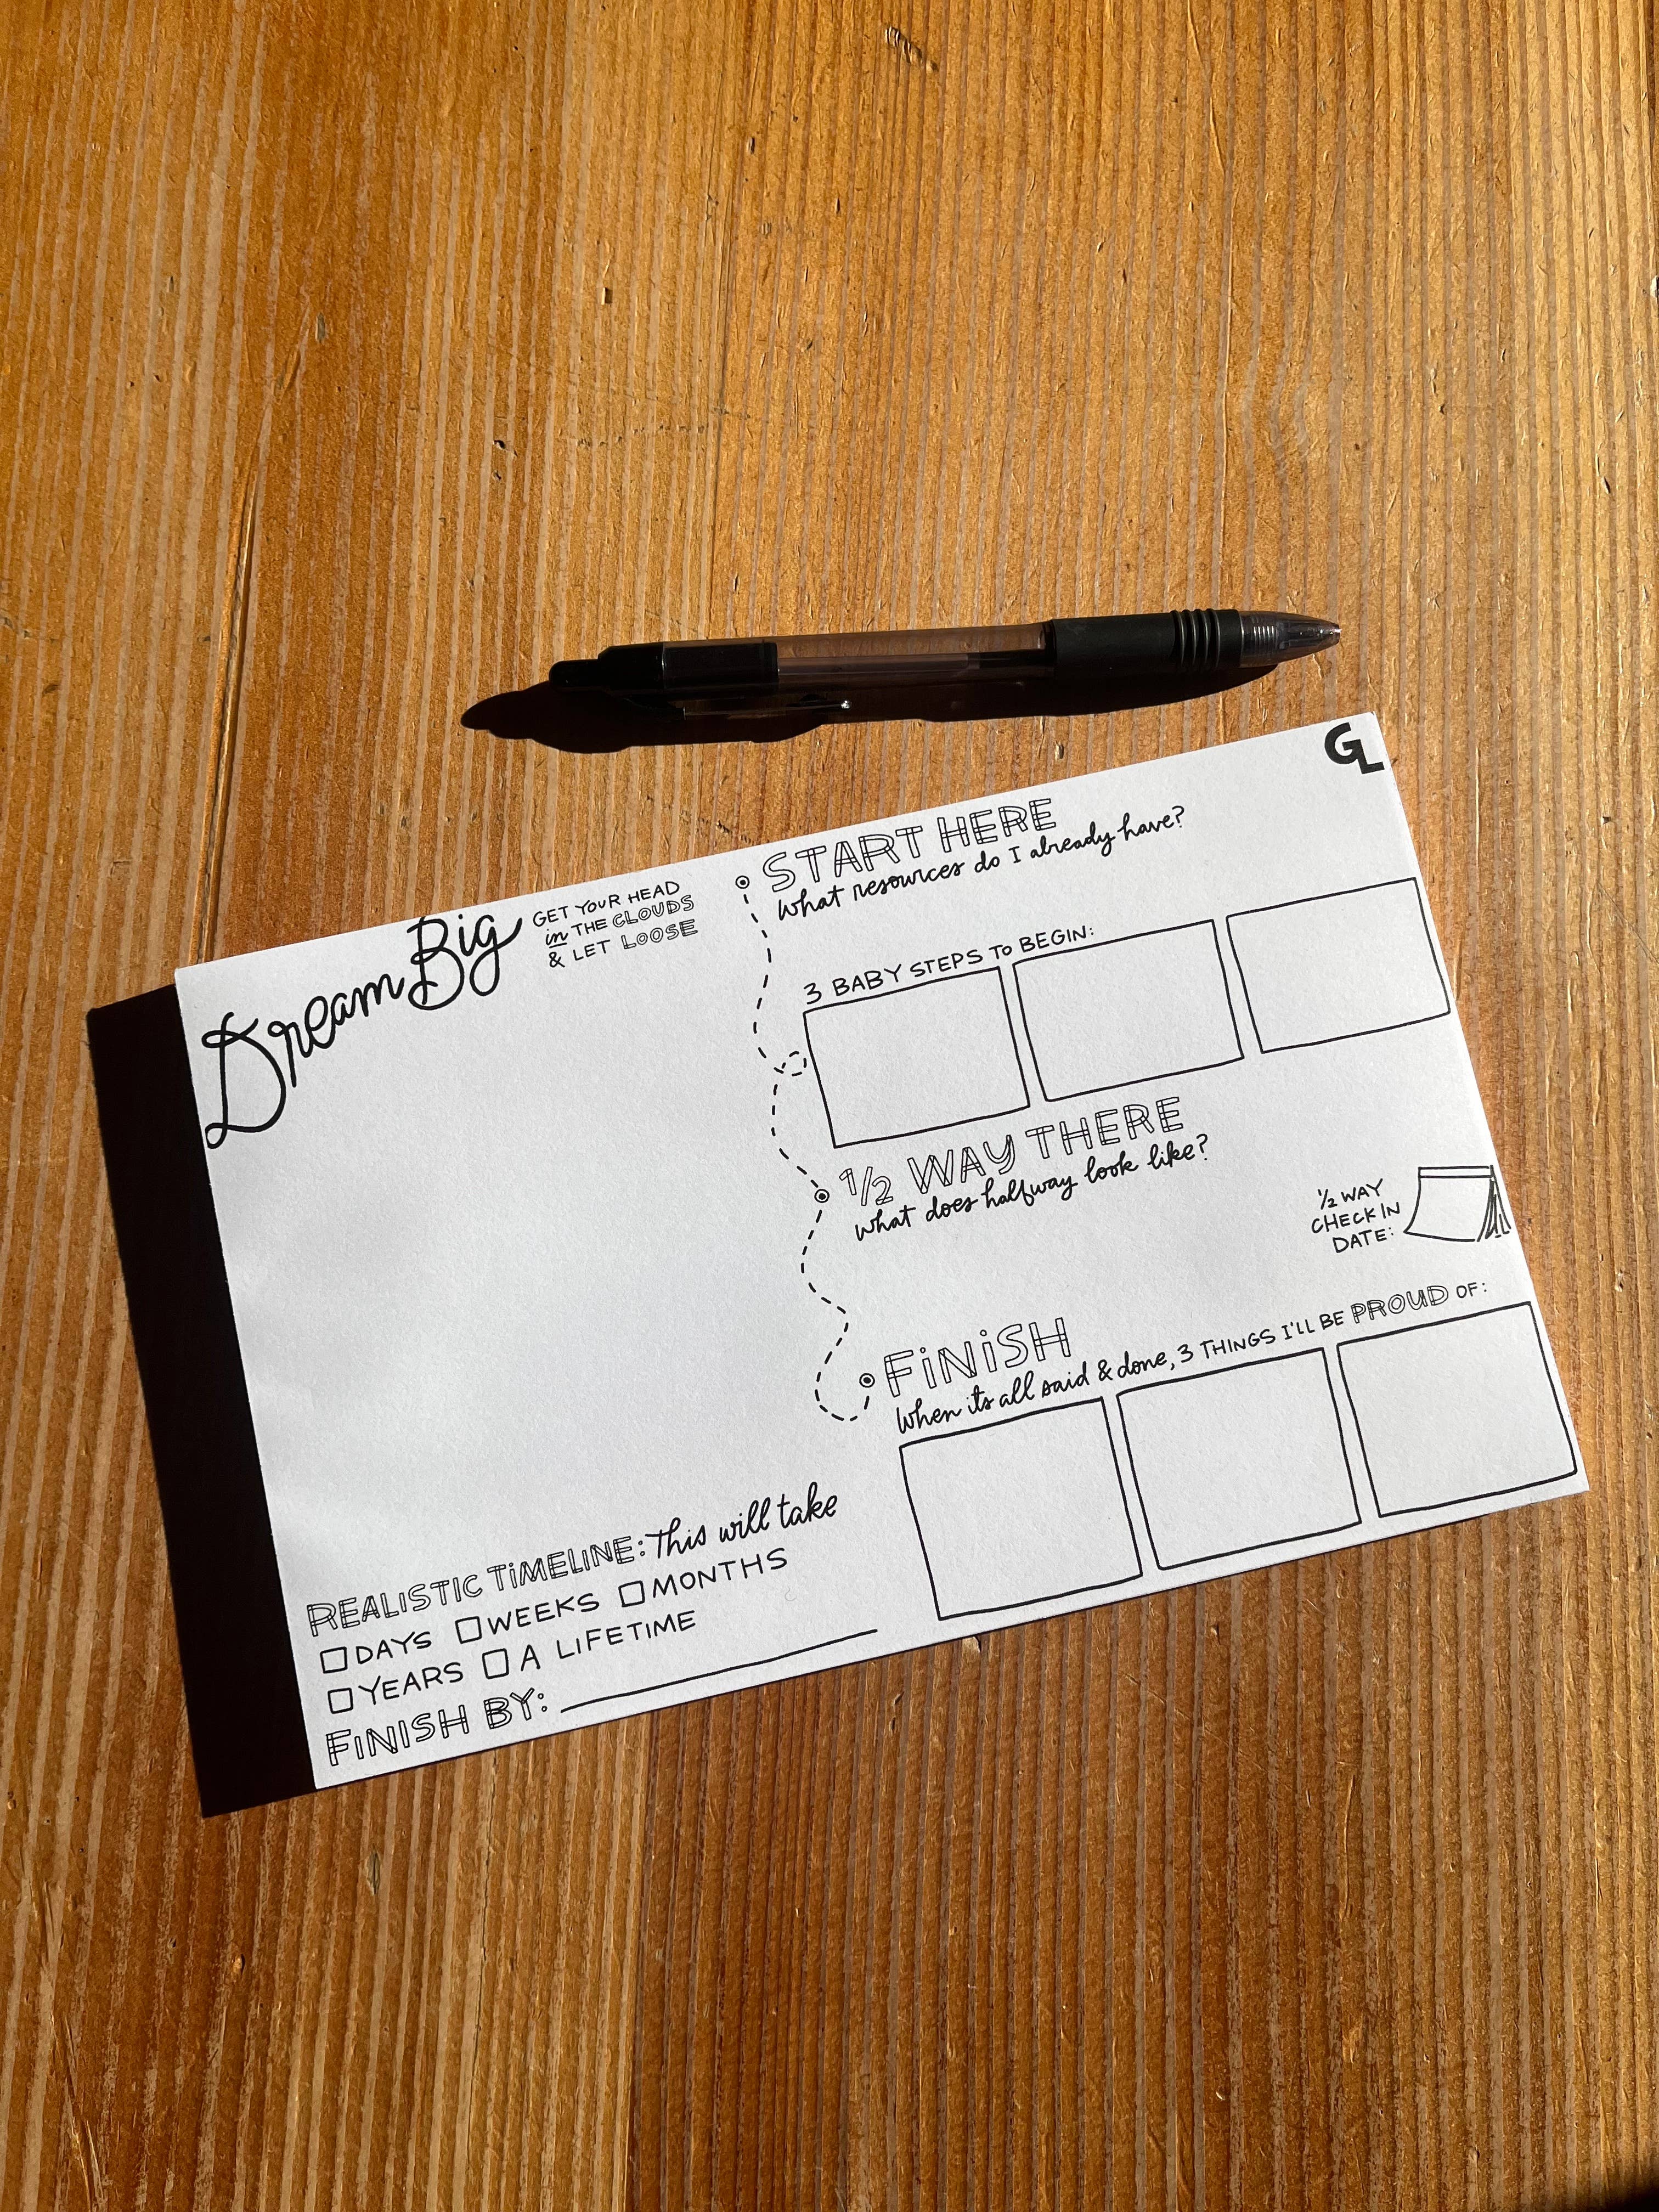 Dream Big
GET YOUR HEAD
in THE CLOUDS
& LET LOOSE
REALISTIC TIMELINE: This will take
DAYS WEEKS MONTHS
YEARS A LIFETIME
FINISH BY:
GL
START HERE
What resources do I already have?
3 BABY STEPS TO BEGIN:
1/2 WAY THERE
What does halfway look like?
1/2 WAY
CHECK IN
DATE:
FINISH
When its all said & done, 3 THINGS I'LL BE PROUD OF: